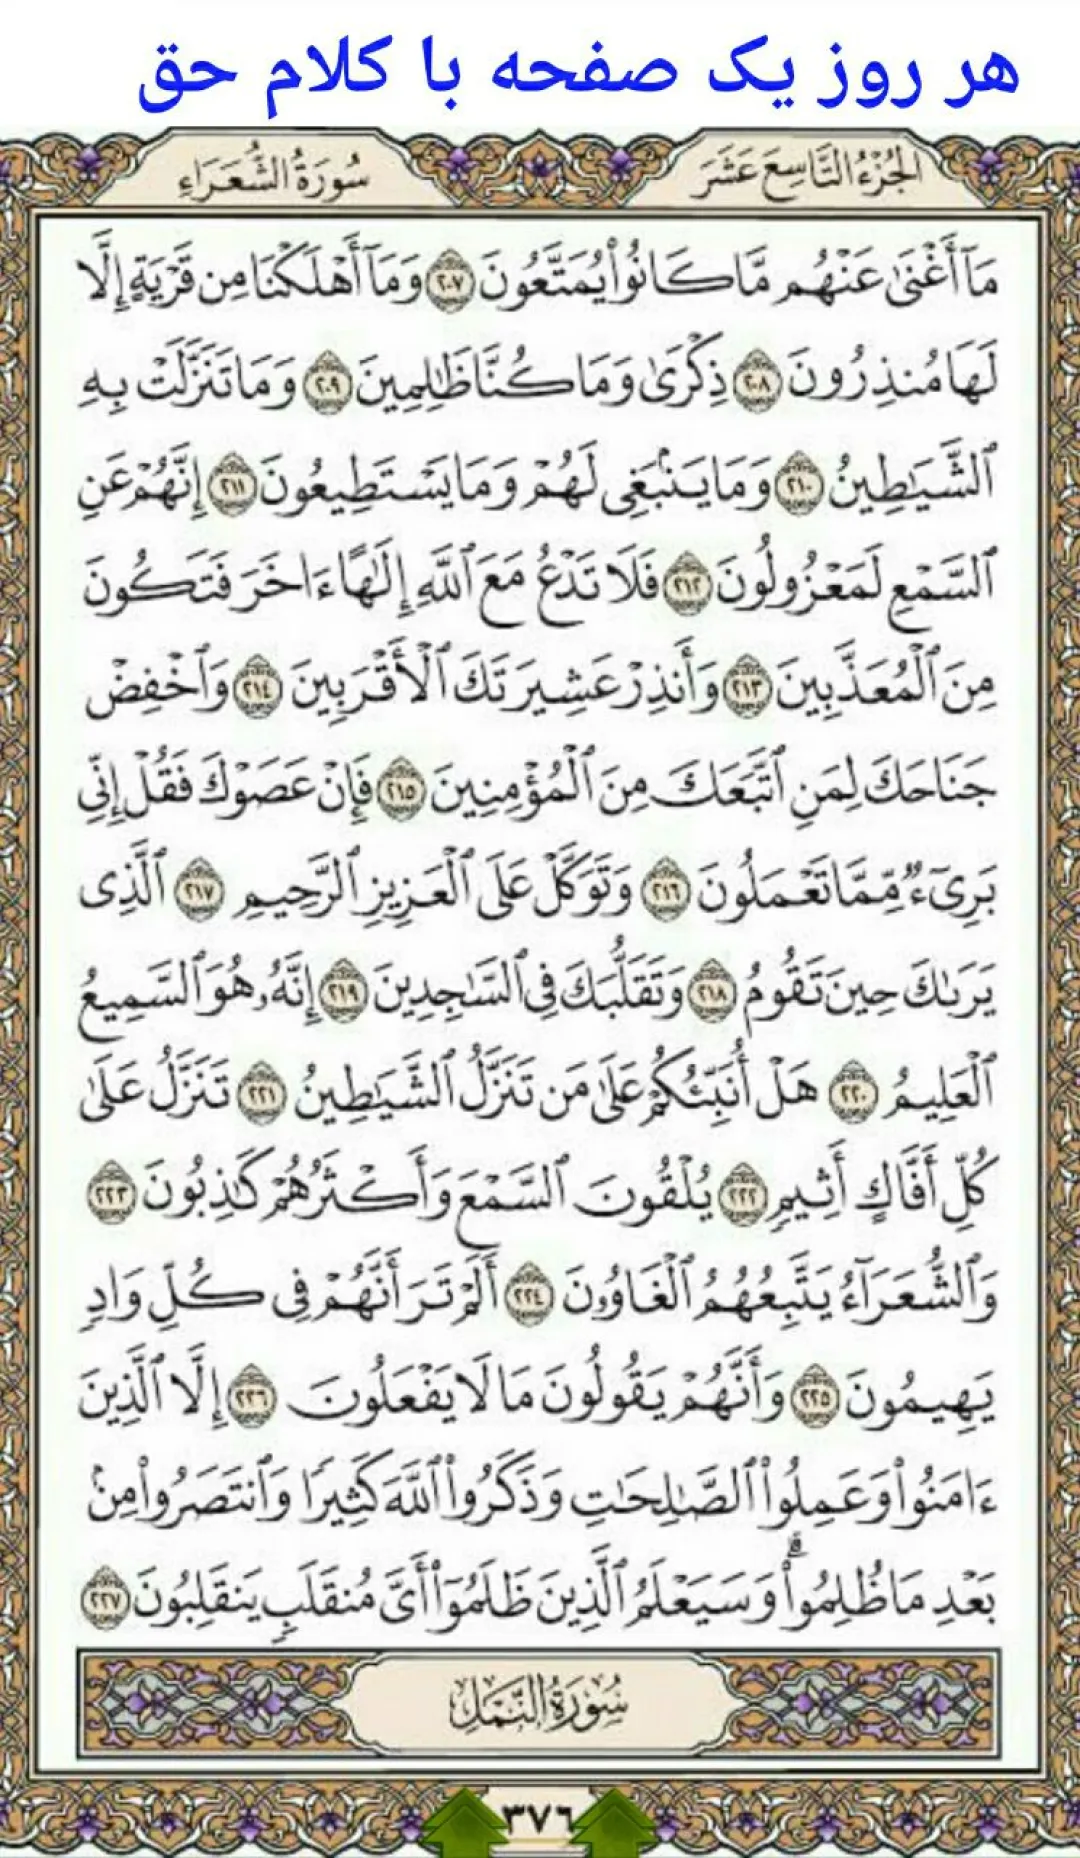 هر روز یک صفحه با کلام حق
الجُزْءُ التَّاسِعَ عَشَرَ
سُورَةُ الشُّعَرَاءِ
مَآ أَغْنَىٰ عَنْهُم مَّا كَانُوا۟ يُمَتَّعُونَ ٢٠٧ وَمَآ أَهْلَكْنَا مِن قَرْيَةٍ إِلَّا
لَهَا مُنذِرُونَ ٢٠٨ ذِكْرَىٰ وَمَا كُنَّا ظَـٰلِمِينَ ٢٠٩ وَمَا تَنَزَّلَتْ بِهِ
ٱلشَّيَـٰطِينُ ٢١٠ وَمَا يَنۢبَغِى لَهُمْ وَمَا يَسْتَطِيعُونَ ٢١١ إِنَّهُمْ عَنِ
ٱلسَّمْعِ لَمَعْزُولُونَ ٢١٢ فَلَا تَدْعُ مَعَ ٱللَّهِ إِلَـٰهًا ءَاخَرَ فَتَكُونَ
مِنَ ٱلْمُعَذَّبِينَ ٢١٣ وَأَنذِرْ عَشِيرَتَكَ ٱلْأَقْرَبِينَ ٢١٤ وَٱخْفِضْ
جَنَاحَكَ لِمَنِ ٱتَّبَعَكَ مِنَ ٱلْمُؤْمِنِينَ ٢١٥ فَإِنْ عَصَوْكَ فَقُلْ إِنِّى
بَرِىٓءٌ مِّمَّا تَعْمَلُونَ ٢١٦ وَتَوَكَّلْ عَلَى ٱلْعَزِيزِ ٱلرَّحِيمِ ٢١٧ ٱلَّذِى
يَرَىٰكَ حِينَ تَقُومُ ٢١٨ وَتَقَلُّبَكَ فِى ٱلسَّـٰجِدِينَ ٢١٩ إِنَّهُۥ هُوَ ٱلسَّمِيعُ
ٱلْعَلِيمُ ٢٢٠ هَلْ أُنَبِّئُكُمْ عَلَىٰ مَن تَنَزَّلُ ٱلشَّيَـٰطِينُ ٢٢١ تَنَزَّلُ عَلَىٰ
كُلِّ أَفَّاكٍ أَثِيمٍ ٢٢٢ يُلْقُونَ ٱلسَّمْعَ وَأَكْثَرُهُمْ كَـٰذِبُونَ ٢٢٣
وَٱلشُّعَرَآءُ يَتَّبِعُهُمُ ٱلْغَاوُۥنَ ٢٢٤ أَلَمْ تَرَ أَنَّهُمْ فِى كُلِّ وَادٍ
يَهِيمُونَ ٢٢٥ وَأَنَّهُمْ يَقُولُونَ مَا لَا يَفْعَلُونَ ٢٢٦ إِلَّا ٱلَّذِينَ
ءَامَنُوا۟ وَعَمِلُوا۟ ٱلصَّـٰلِحَـٰتِ وَذَكَرُوا۟ ٱللَّهَ كَثِيرًا وَٱنتَصَرُوا۟ مِنۢ
بَعْدِ مَا ظُلِمُوا۟ ۗ وَسَيَعْلَمُ ٱلَّذِينَ ظَلَمُوٓا۟ أَىَّ مُنقَلَبٍ يَنقَلِبُونَ ٢٢٧
سُورَةُ النَّمْلِ
٣٧٦